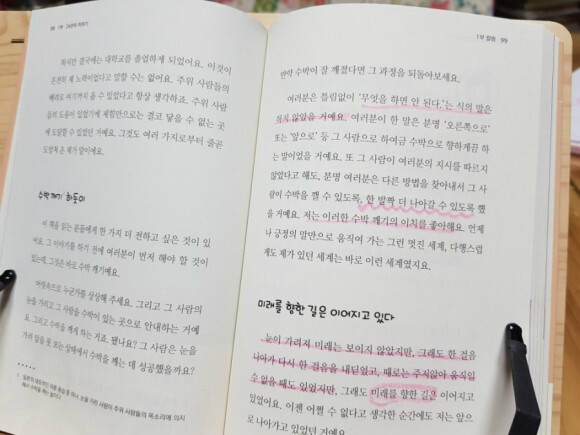 하지만 결국에는 대학교를 졸업하게 되었어요. 이것이
온전히 제 노력이었다고 말할 수는 없어요. 주위 사람들의
배려로 여기까지 올 수 있었다고 항상 생각하죠. 주위 사람
들의 도움이 있었기에 제힘만으로는 결코 닿을 수 없는 곳
에 도달할 수 있었던 거예요. 그것도 여러 가지로부터 줄곧
도망쳐 온 제가 말이에요.
수박 깨기
이 책을 읽는 분들에게 한 가지 더 전하고 싶은 것이 있
어요. 그 이야기를 하기 전에 여러분이 먼저 해야 할 것이
있는데, 그것은 바로 수박 깨기예요.
머릿속으로 누군가를 상상해 주세요. 그리고 그 사람의
눈을 가리고 그 사람을 수박이 있는 곳으로 안내하는 거예
요. 그리고 수박을 깨게 하는 거죠. 됐나요? 그 사람은 눈을
가려 앞을 못 보는 상태에서 수박을 깨는 데 성공했을까요?
1부 칼럼 99
만약 수박이 잘 깨졌다면 그 과정을 되돌아보세요.
여러분은 틀림없이 '무엇을 하면 안 된다.'는 식의 말은
하지 않았을 거예요. 여러분이 한 말은 분명 '오른쪽으로'
또는 '앞으로' 등 그 사람으로 하여금 수박으로 향하게끔 하
는 말이었을 거예요. 또 그 사람이 여러분의 지시를 따르지
않았다고 해도, 분명 여러분은 다른 방법을 찾아내서 그 사
람이 수박을 깰 수 있도록, 한 발짝 더 나아갈 수 있도록 했
을 거예요. 저는 이러한 수박 깨기의 이치를 좋아해요. 언제
나 긍정의 말만으로 움직여 가는 그런 멋진 세계, 다행스럽
게도 제가 있던 세계는 바로 이런 세계였지요.
미래를 향한 길은 이어지고 있다
눈이 가려져 미래는 보이지 않았지만, 그래도 한 걸음
나아가 다시 한 걸음을 내딛었고, 때로는 주저앉아 움직일
수 없을 때도 있었지만, 그래도 미래를 향한 길은 이어지고
있었어요. 이젠 어쩔 수 없다고 생각한 순간에도 저는 앞으
로 나아가고 있었던 거예요.